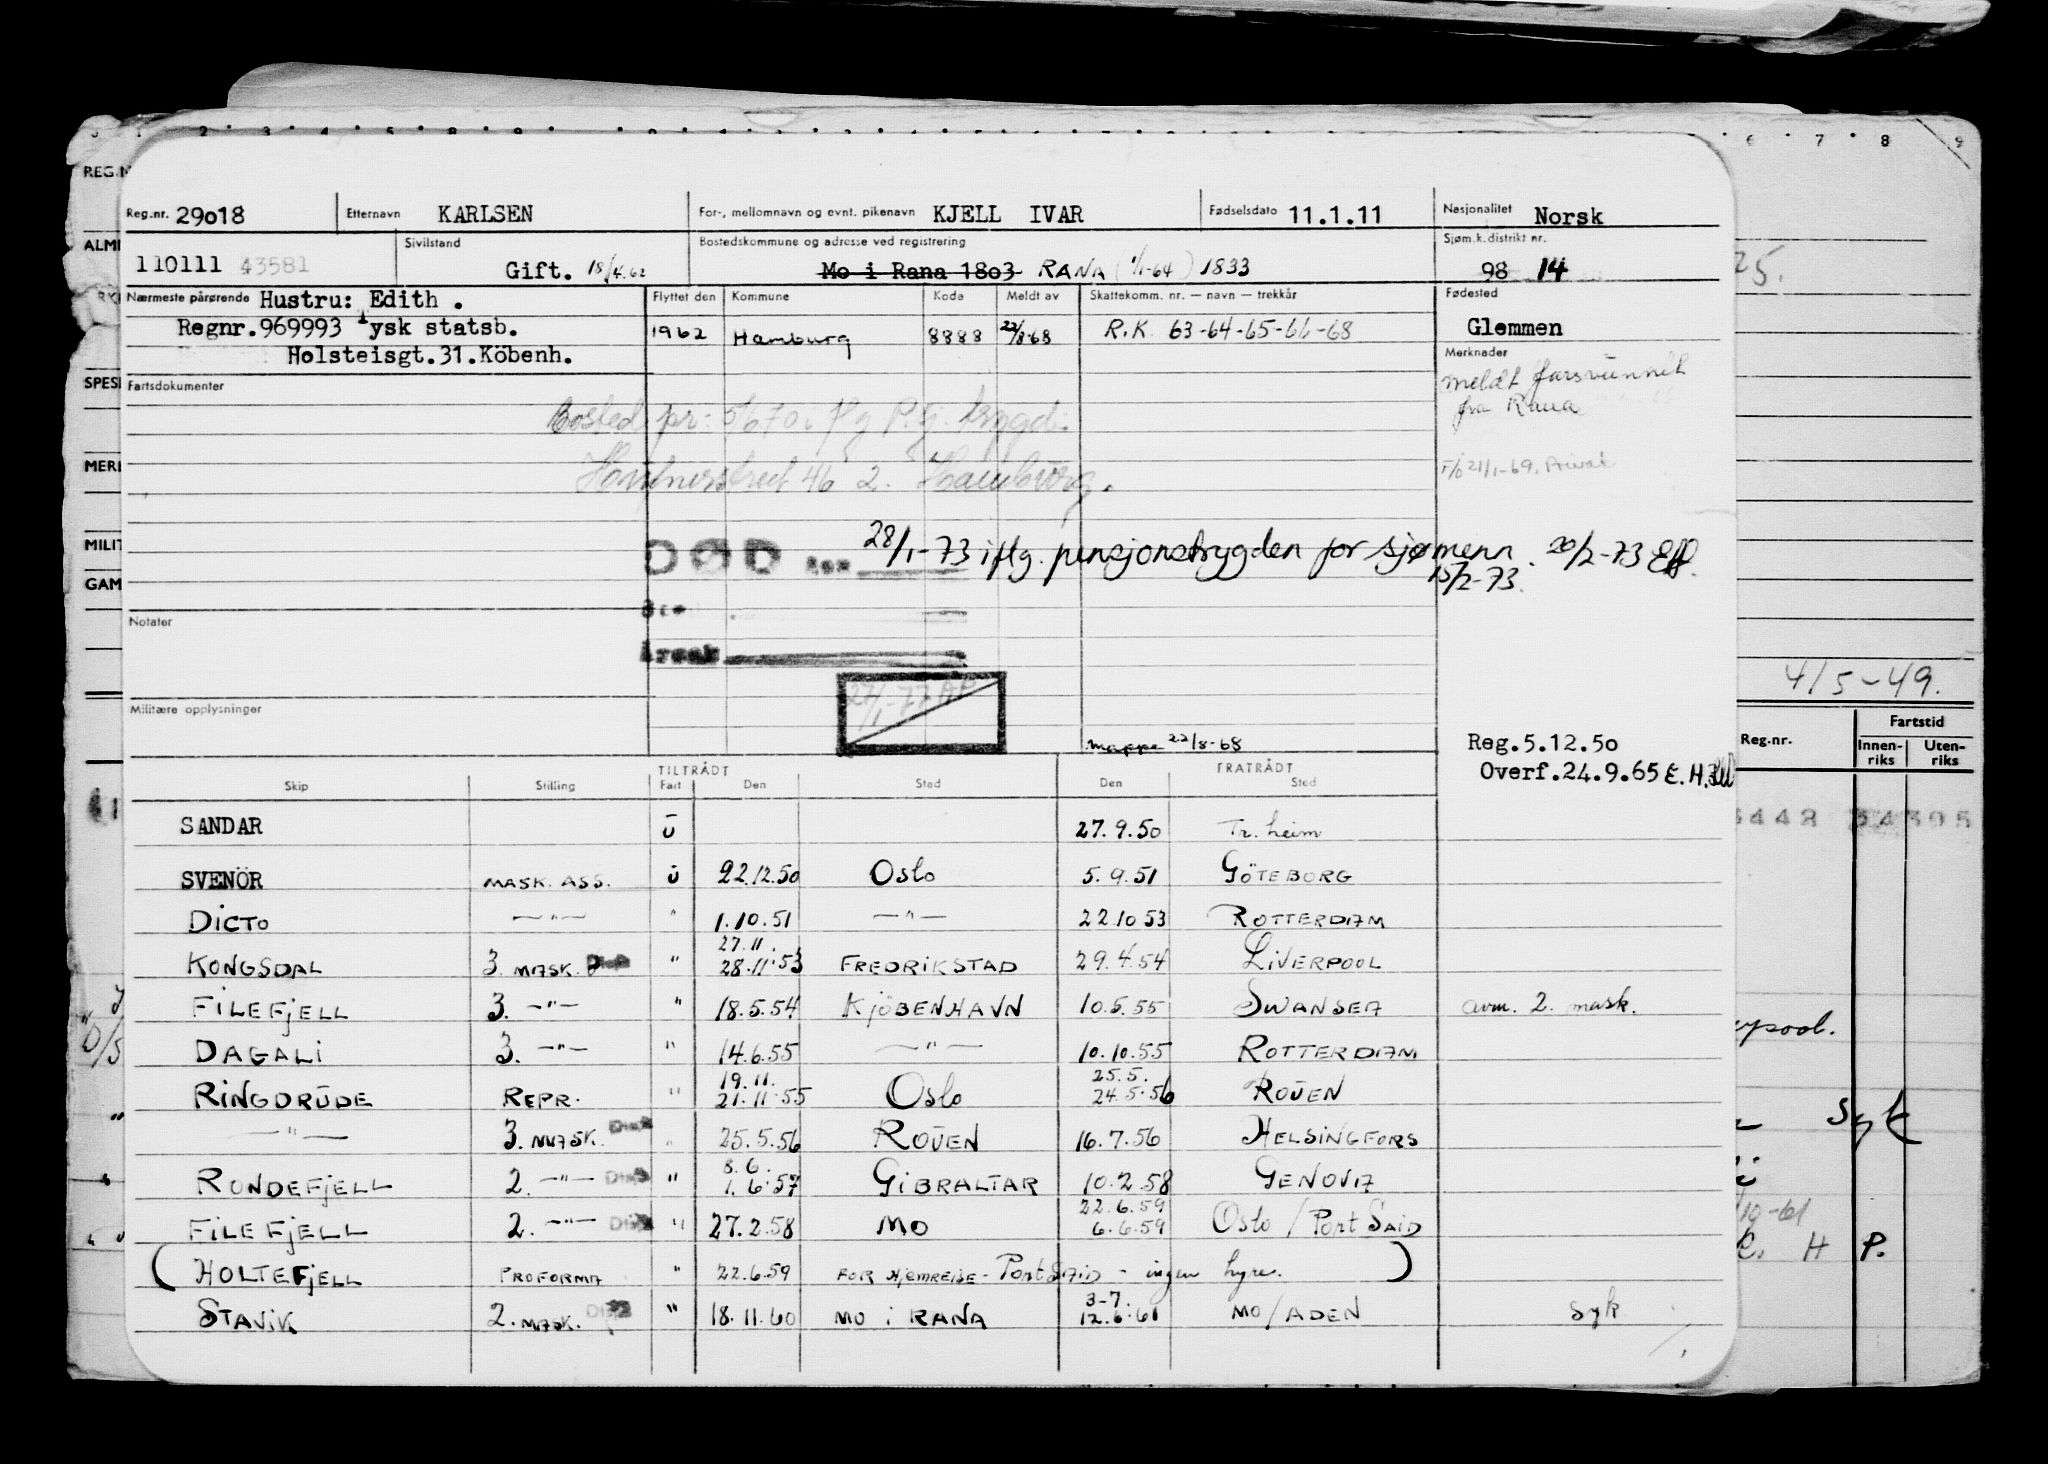 REG.N
6 7 8 9
Reg.nr. 29o18 Etternavn KARLSEN For-, mellomnavn og evnt. pikenavn KJELL IVAR Fødselsdato 11.1.11 Nasjonalitet Norsk
ALM
110111 43581 Sivilstand Gift. 18/4.62 Bostedskommune og adresse ved registrering Mo i Rana 18o3 RANA (1/1-64) 1833 Sjøm.k.distrikt nr. 98 14
25.
Nærmeste pårørende Hustru: Edith . Flyttet den Kommune Kode Meldt av Skattekomm. nr. — navn — trekkår Fødested
Regnr.969993 Tysk statsb. 1962 Hamburg 8888 22/8-68 R.K. 63-64-65-66-68 Glemmen
Holsteisgt.31.Köbenh.
Merknader
SPES Fartsdokumenter meldt forsvunnet
fra Rana
Bosted pr: 5/6 70 ifg P.tj. trygd.
MER
46 2. Hamburg. 21/1-69. Privat
MILIT DØD 28/1-73 iflg. pensjonstrygden for sjømenn. 20/2-73
15/2-73.
GAM
Notater
Årsak
27/1-77
4/5-49.
Militære opplysninger
mappe 22/8-68
Reg.5.12.5o
Overf.24.9.65 E.H.
Reg.nr. Fartstid
Innen-riks Uten-riks
TILTRÅDT FRATRÅDT
Skip Stilling Fart Den Sted Den Sted
SANDAR U 27.9.50 Tr.heim
SVENÖR MASK. ASS. U 22.12.50 Oslo 5.9.51 GÖTEBORG
DICTO —"— " 1.10.51 —"— 22.10 53 ROTTERDAM
27.11.
KONGSDAL 3. MASK. " 28.11.53 FREDRIKSTAD 29.4.54 LIVERPOOL
FILEFJELL 3. —"— " 18.5.54 KJÖBENHAVN 10.5.55 SWANSEA avm. 2. mask.
DAGALI 3. —"— " 14.6.55 —"— 10.10.55 ROTTERDAM
19.11. 25.5.
RINGDRUDE REPR. " 21.11.55 Oslo 24.5.56 ROUEN
—"— 3. MASK. " 25.5.56 ROUEN 16.7.56 HELSINGFORS
Syk
8.6.
RONDEFJELL 2. —"— " 1.6.57 GIBRALTAR 10.2.58 GENOVA
22.6.59
FILEFJELL 2. —"— " 27.2.58 MO 6.6.59 Oslo / Port SAID
H P.
(HOLTEFJELL PROFORMA " 22.6.59 FOR HJEMREISE - Port SAID - ingen hyre.)
3-7.
STAVIK 2. MASK. " 18.11.60 MO i RANA 12.6.61 MO/ADEN Syk